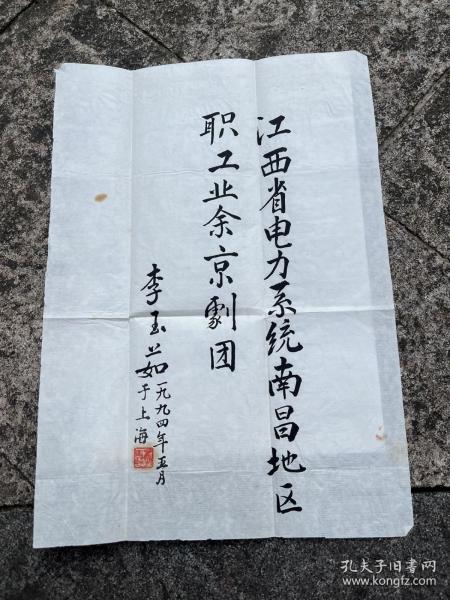 江西省电力系统南昌地区
职工业余京劇团
李玉茹
一九九四年五月
于上海
孔夫子旧书网
www.kongfz.com